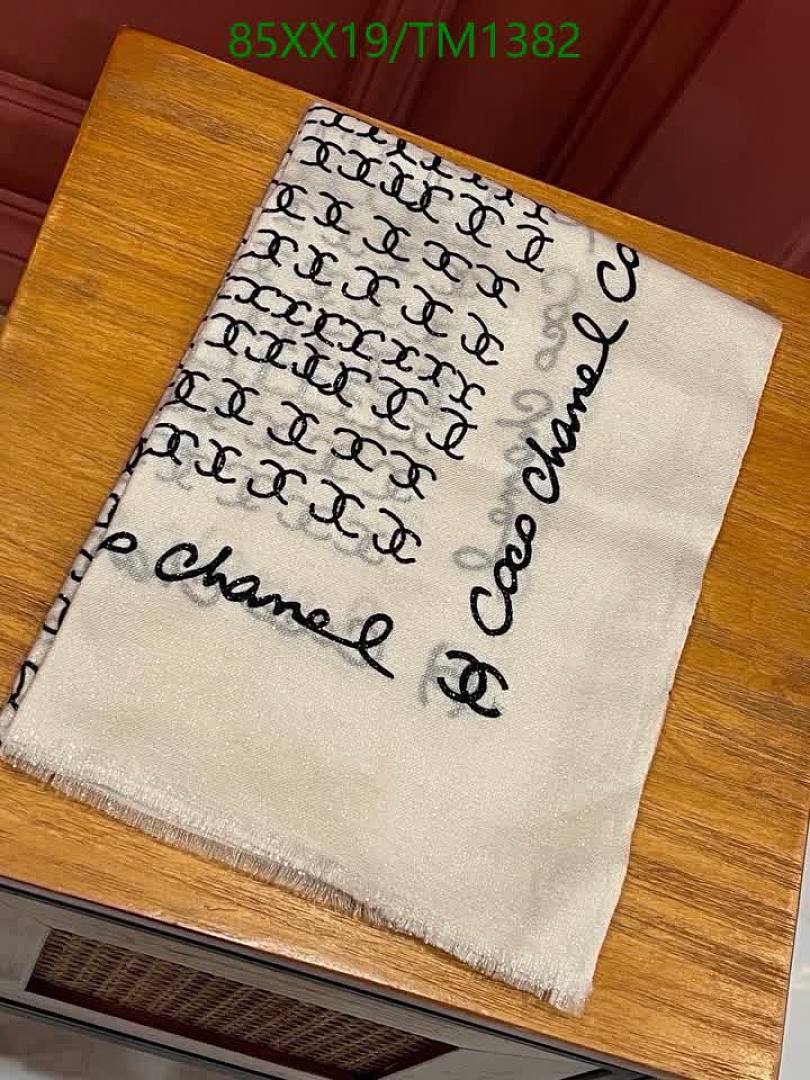 85XX19/TM1382
Coco Chanel Co
o Chanel